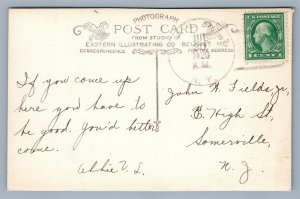 PHOTOGRAPH
POST CARD
FROM STUDIO OF
EASTERN ILLUSTRATING CO BELFAST ME
CORRESPONDENCE
FOR THE ADDRESS
1920
A.M.
If you come up
here you have to
be good. you'd better
come.
Abbie V. S.
John N. Fields, Jr.
E. High St,
Somerville,
N. J.